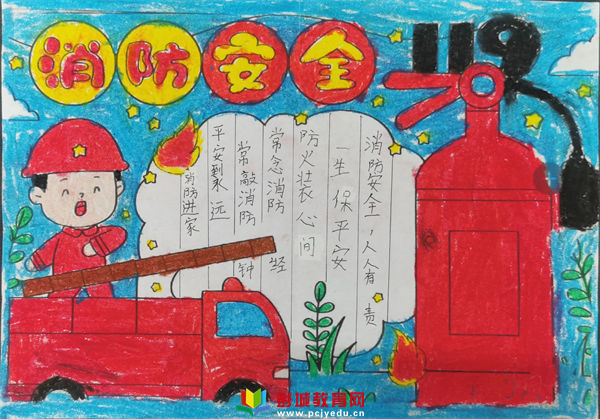 消防安全
119
消防安全，人人有责
一生保平安
防火装心间
常念消防经
常敲消防钟
平安到永远
消防进家
彭城教育网
www.pcjyedu.cn